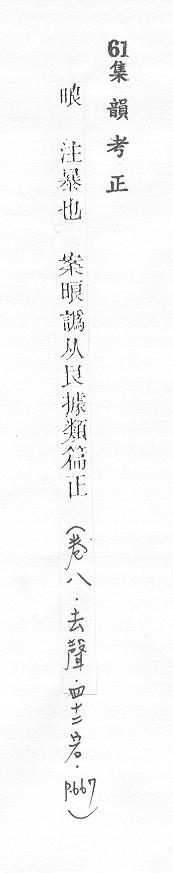 61集韻考正
㫰 注暴也 案㫰譌从艮據類篇正（卷八．去聲．四十二宕．P.667）